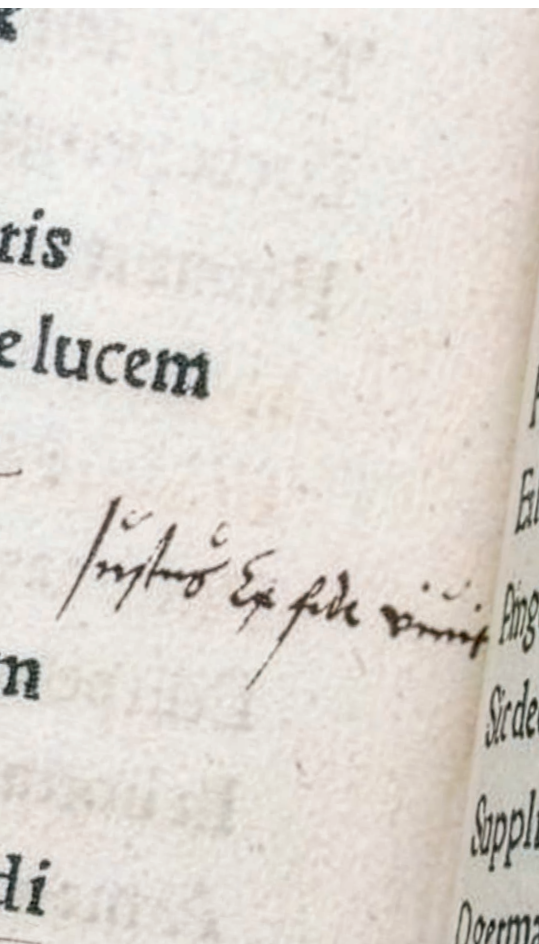 ris
e lucem
Justus Ex fide vivit
m
di
Pinge
Sic de
Suppli
Ogerma